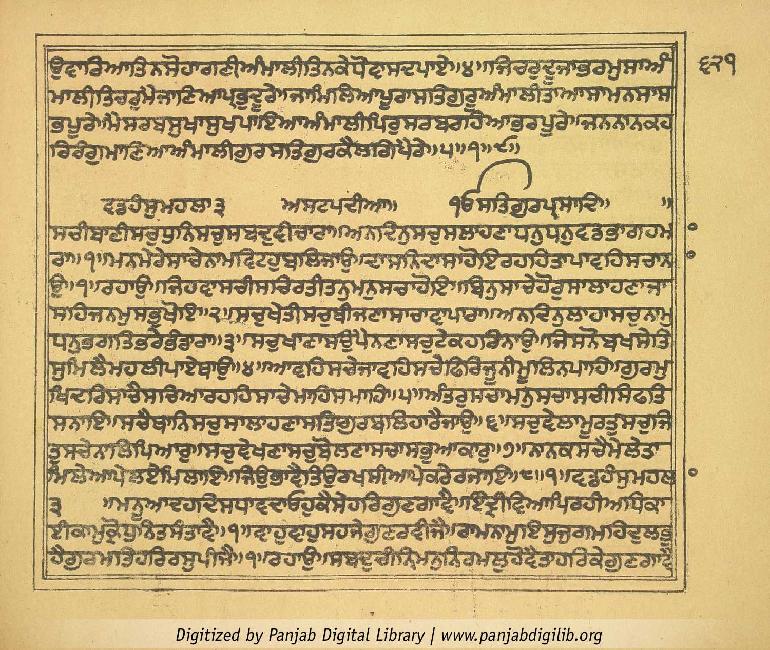 ਉਵਾਰਿਆਤਿਨਸੋਹਾਗਣੀਅੰਮਾਲੀਤਿਨਕੇਧੋਵਾਸਦਪਾਏ॥੪॥ਜਿਚਰੁਦੂਜਾਭਰਮੁਸਾਅੰ
ਮਾਲੀਤਿਚਰੁਮੈਜਾਣਿਆਪ੍ਰਭੁਦੂਰੇ॥ਜਾਮਿਲਿਆਪੂਰਾਸਤਿਗੁਰੂਅੰਮਾਲੀਤਾਆਸਾਮਨਸਾਸ
ਭਪੂਰੇ॥ਮੈਸਰਬਸੁਖਾਸੁਖਪਾਇਆਅੰਮਾਲੀਪਿਰੁਸਰਬਰਹਿਆਭਰਪੂਰੇ॥ਜਨਨਾਨਕਹ
ਰਿਰੰਗੁਮਾਣਿਆਅੰਮਾਲੀਗੁਰਸਤਿਗੁਰਕੈਲਗਿਪੈਰੇ॥੫॥੧॥੯॥
ਵਡਹੰਸੁਮਹਲਾ੩ ਅਸਟਪਦੀਆ॥ ੴਸਤਿਗੁਰਪ੍ਰਸਾਦਿ॥ ॥
ਸਚੀਬਾਣੀਸਚੁਧੁਨਿਸਚੁਸਬਦੁਵੀਚਾਰਾ॥ਅਨਦਿਨੁਸਚੁਸਲਾਹਣਾਧਨੁਧਨੁਵਡਭਾਗਹਮ
ਰਾ॥੧॥ਮਨਮੇਰੇਸਾਚੇਨਾਮਵਿਟਹੁਬਲਿਜਾਉ॥ਦਾਸਨਿਦਾਸਾਹੋਇਰਹਹਿਤਾਪਾਵਹਿਸਚਾਨਾ
ਉ॥੧॥ਰਹਾਉ॥ਜਿਹਵਾਸਚੀਸਚਿਰਤੀਤਨੁਮਨੁਸਚਾਹੋਇ॥ਬਿਨੁਸਾਚੇਹੋਰੁਸਾਲਾਹਣਾਜਾ
ਸਹਿਜਨਮੁਸਭੁਖੋਇ॥੨॥ਸਚੁਖੇਤੀਸਚੁਬੀਜਣਾਸਾਚਾਵਾਪਾਰਾ॥ਅਨਦਿਨੁਲਾਹਾਸਚੁਨਾਮੁ
ਧਨੁਭਗਤਿਭਰੇਭੰਡਾਰਾ॥੩॥ਸਚੁਖਾਣਾਸਚੁਪੈਨਣਾਸਚੁਟੇਕਹਰਿਨਾਉ॥ਜਿਸਨੋਬਖਸੇਤਿ
ਸੁਮਿਲੈਮਹਲੀਪਾਏਥਾਉ॥੪॥ਆਵਹਿਸਚੇਜਾਵਹਿਸਚੇਫਿਰਿਜੂਨੀਮੂਲਿਨਪਾਹਿ॥ਗੁਰਮੁ
ਖਿਦਰਿਸਾਚੈਸਚਿਆਰਹਹਿਸਾਚੇਮਾਹਿਸਮਾਹਿ॥੫॥ਅੰਤਰੁਸਚਾਮਨੁਸਚਾਸਚੀਸਿਫਤਿ
ਸਨਾਇ॥ਸਚੈਥਾਨਿਸਚੁਸਾਲਾਹਣਾਸਤਿਗੁਰਬਲਿਹਾਰੈਜਾਉ॥੬॥ਸਚੁਵੇਲਾਮੂਰਤੁਸਚੁਜਿ
ਤੁਸਚੇਨਾਲਿਪਿਆਰੁ॥ਸਚੁਵੇਖਣਾਸਚੁਬੋਲਣਾਸਚਾਸਭੁਆਕਾਰੁ॥੭॥ਨਾਨਕਸਚੈਮੇਲੇਤਾ
ਮਿਲੇਆਪੇਲਏਮਿਲਾਇ॥ਜਿਉਭਾਵੈਤਿਉਰਖਸੀਆਪੇਕਰੇਰਜਾਇ॥੮॥੧॥ਵਡਹੰਸੁਮਹਲਾ
੩ ॥ਮਨੂਆਦਹਦਿਸਧਾਵਦਾਓਹੁਕੈਸੇਹਰਿਗੁਣਗਾਵੈ॥ਇੰਦ੍ਰੀਵਿਆਪਿਰਹੀਅਧਿਕਾ
ਈਕਾਮੁਕ੍ਰੋਧੁਨਿਤਸੰਤਾਵੈ॥੧॥ਵਾਹੁਵਾਹੁਸਹਜੇਗੁਣਰਵੀਜੈ॥ਰਾਮਨਾਮੁਇਸੁਜੁਗਮਹਿਦੁਲਭੁ
ਹੈਗੁਰਮਤਿਹਰਿਰਸੁਪੀਜੈ॥੧॥ਰਹਾਉ॥ਸਬਦੁਚੀਨਿਮਨੁਨਿਰਮਲੁਹੋਵੈਤਾਹਰਿਕੇਗੁਣਗਾਵੈ
੬੨੧
Digitized by Panjab Digital Library | www.panjabdigilib.org